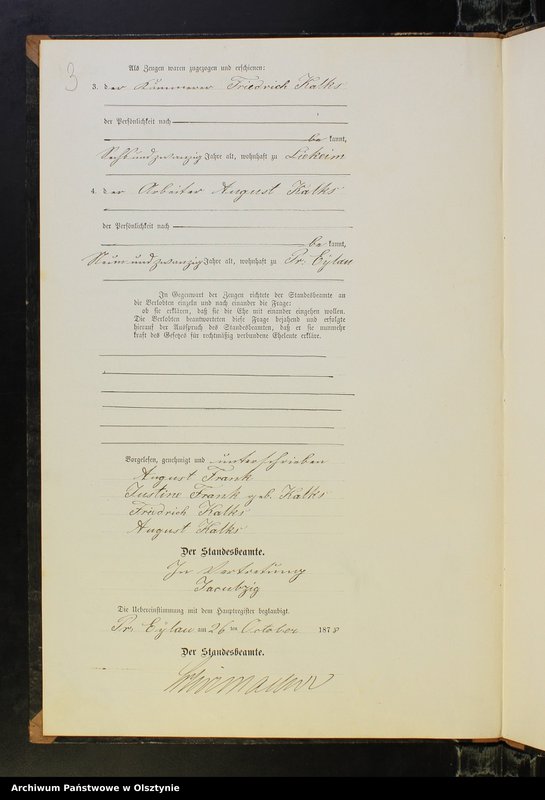 3
Als Zeugen waren zugezogen und erschienen:
3. der Kämmerer Friedrich Kalks
der Persönlichkeit nach
be kannt,
Sechs und zwanzig Jahre alt, wohnhaft zu Liekeim
4. der Arbeiter August Kalks
der Persönlichkeit nach
be kannt,
Neun und zwanzig Jahre alt, wohnhaft zu Pr. Eylau
In Gegenwart der Zeugen richtete der Standesbeamte an
die Verlobten einzeln und nach einander die Frage:
ob sie erklären, daß sie die Ehe mit einander eingehen wollen.
Die Verlobten beantworteten diese Frage bejahend und erfolgte
hierauf der Ausspruch des Standesbeamten, daß er sie nunmehr
kraft des Gesetzes für rechtmäßig verbundene Eheleute erkläre.
Vorgelesen, genehmigt und unterschrieben
August Frank
Justine Frank geb. Kalks
Friedrich Kalks
August Kalks
Der Standesbeamte.
In Vertretung
Die Uebereinstimmung mit dem Hauptregister beglaubigt.
Pr. Eylau am 26 ten October 1878
Der Standesbeamte.
Archiwum Państwowe w Olsztynie